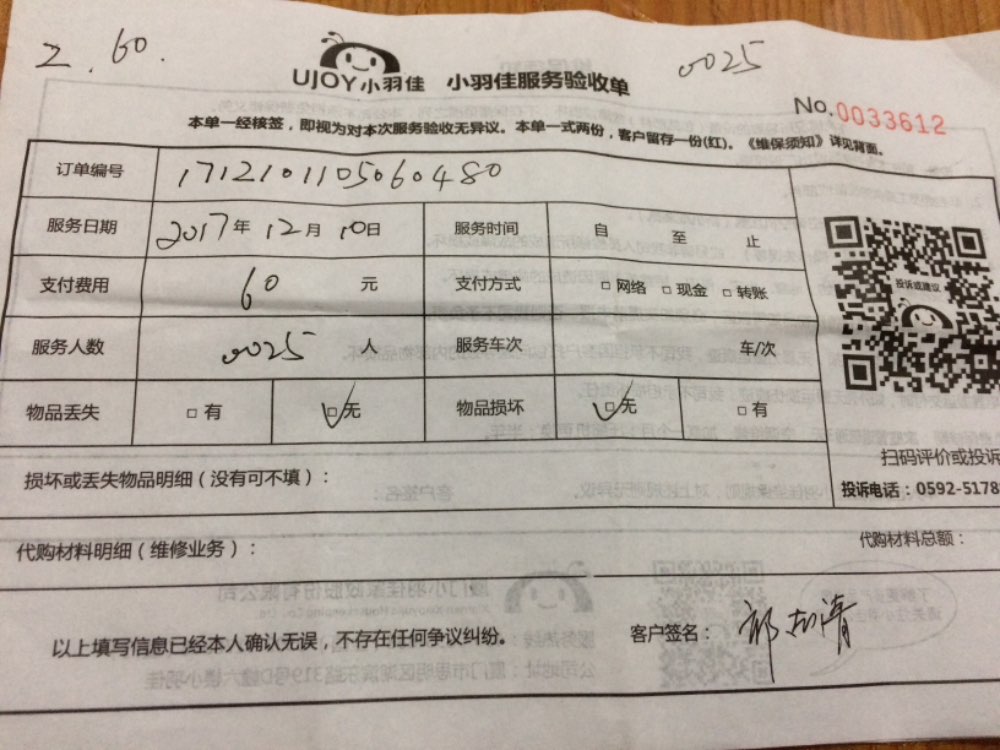 2.60
0025
UJOY小羽佳 小羽佳服务验收单
No.0033612
本单一经核签，即视为对本次服务验收无异议。本单一式两份，客户留存一份(红)。《维保须知》详见背面。
订单编号 171210110506​0480
服务日期 2017年 12月 10日 服务时间 自 至 止
支付费用 60 元 支付方式 □网络 □现金 □转账
投诉或建议
服务人数 0025 人 服务车次 车/次
物品丢失 □有 ☑无 物品损坏 ☑无 □有
扫码评价或投诉
损坏或丢失物品明细（没有可不填）：
投诉电话：0592-5178
代购材料明细（维修业务）： 代购材料总额：
以上填写信息已经本人确认无误，不存在任何争议纠纷。 客户签名：